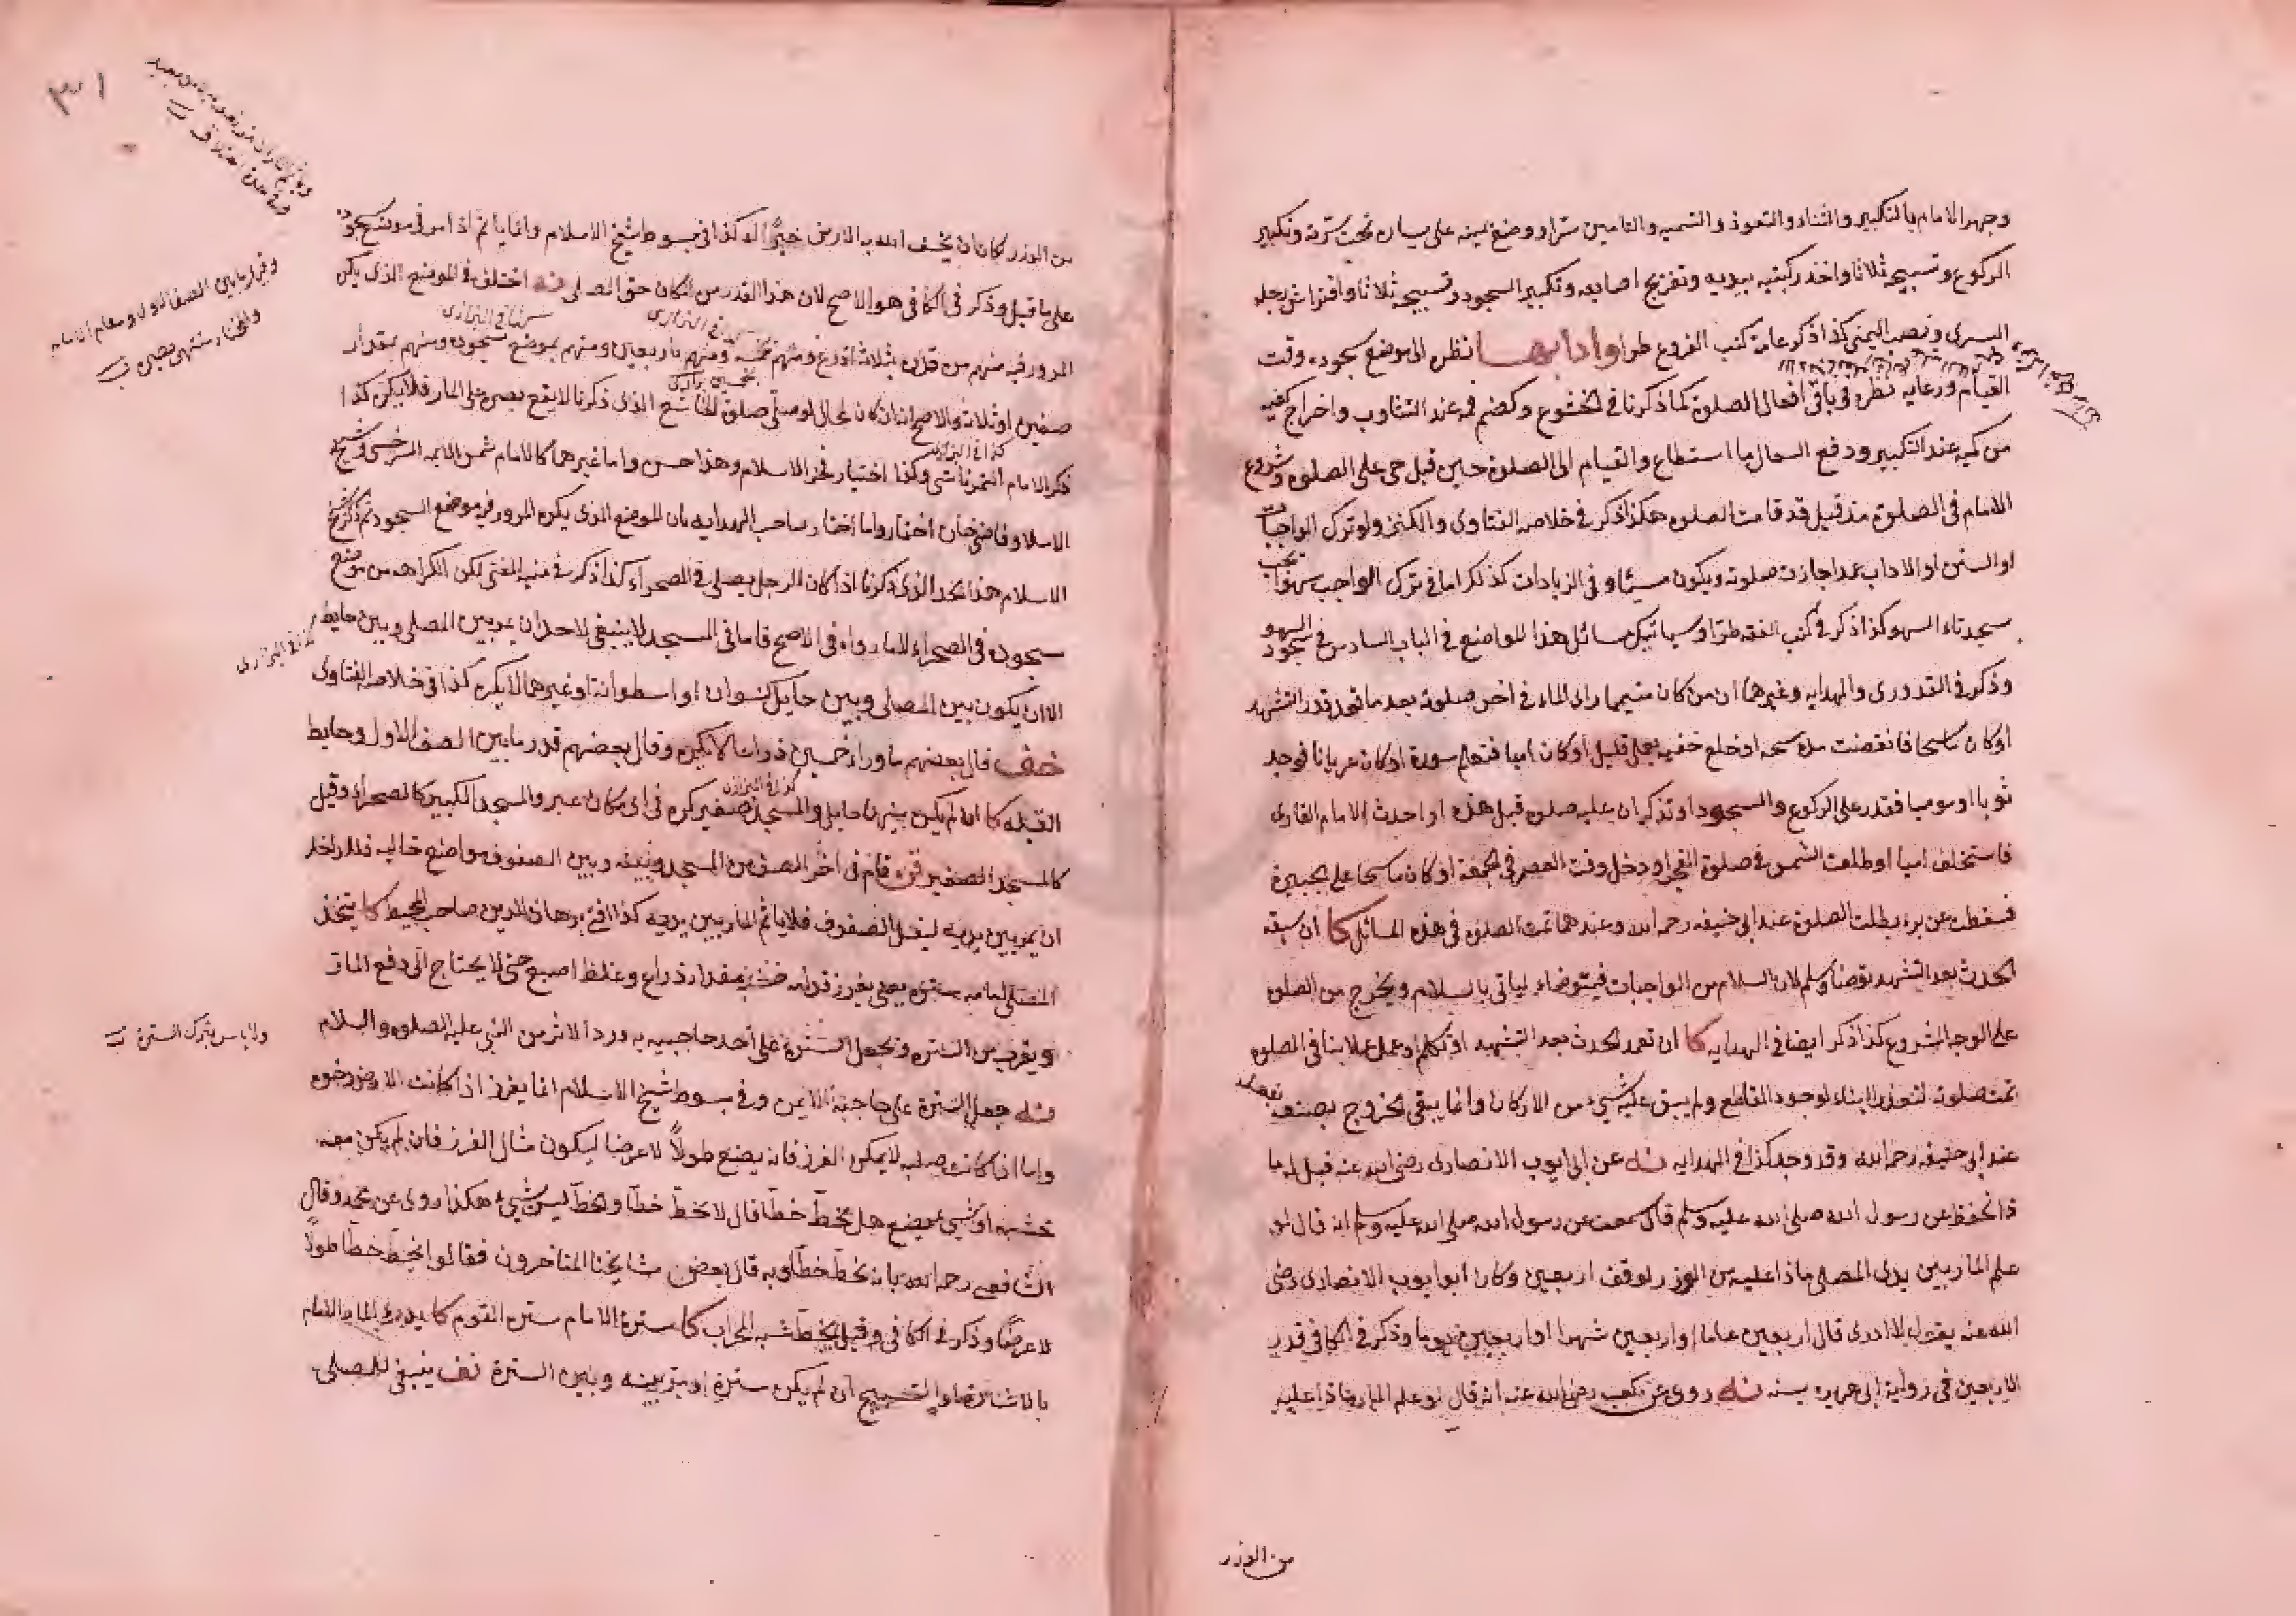 وجهر الامام بالتكبير والثناء والتعوذ والتسميه والتامين سرا ووضع يمينه على يساره تحت سرته وتكبير
الركوع وتسبيحه ثلاثا واخذ ركبتيه بيديه وتفريج اصابعه وتكبير السجود وتسبيحه ثلاثا وافتراش رجله
اليسرى ونصب اليمنى كذا ذكر عامة كتب الفروع طرا وادابها نظره الى موضع سجوده وقت
القيام ورعايه نظره فى باقى افعال الصلوة كما ذكرنا فى الخشوع وكضم فمه عند التثاوب واخراج كفيه
من كميه عند التكبير ودفع السعال ما استطاع والقيام الى الصلوة حين قيل حى على الصلوه وشروع
الامام فى الصلوة مذ قيل قد قامت الصلوه هكذا ذكر فى خلاصه الفتاوى والكنز ولو ترك الواجبات
او السنن او الاداب عمدا جازت صلوته ويكون مسيئا وفى الزيادات كذلك اما فى ترك الواجب سهوا تجب
سجدتاء السهو كذا ذكر فى كتب الفقه طرا وسياتيك مسائل هذا المواضع فى الباب السادس فى سجود السهو
وذكر فى القدورى والهدايه وغيرهما ان من كان متيمما راى الماء فى اخر صلوته بعد ما قعد قدر التشهد
او كان ماسحا فانقضت مدة مسحه او خلع خفيه بعمل قليل او كان اميا فتعلم سورة او كان عريانا فوجد
ثوبا او موميا فقدر على الركوع والسجود او تذكر ان عليه صلوه قبل هذه او احدث الامام القارى
فاستخلف اميا او طلعت الشمس فى صلوة الفجر او دخل وقت العصر فى الجمعة او كان ماسحا على الجبيرة
فسقطت عن برء بطلت الصلوة عند ابى حنيفه رحمه الله وعندهما تمت الصلوه فى هذه المسائل كا ان سبقه
الحدث بعد التشهد توضأ وسلم لان السلام من الواجبات فيتوضاء لياتى بالسلام ويخرج من الصلوه
على الوجه المشروع كذا ذكر ايضا فى الهدايه كا ان تعمد الحدث بعد التشهد او تكلم او عمل عملا ينافى الصلوه
تمت صلوته لتعذر البناء لوجود القاطع ولم يبق عليه شىء من الاركان وانما يبقى الخروج بصنعه
عند ابى حنيفه رحمه الله وقد وجد كذا فى الهدايه عن ابى ايوب الانصارى رضى الله عنه قيل له ما
ذا تحفظ عن رسول الله صلى الله عليه وسلم قال سمعت عن رسول الله صلى الله عليه وسلم انه قال لو
علم المار بين يدى المصلى ماذا عليه من الوزر لوقف اربعين وكان ابو ايوب الانصارى رضى
الله عنه يقول لا ادرى قال اربعين عاما او اربعين شهرا او اربعين يوما وذكر فى الكافى قدر
الاربعين فى رواية ابى هريره بسنه روى عن كعب رضى الله عنه انه قال لو علم المار ماذا عليه
من الوزر
٣١
من الوزر كان ان يخسف الله به الارض خيرا له كذا فى مبسوط شيخ الاسلام وانما ياثم اذا مر فى موضع سجوده
على ما قيل وذكر فى الكافى هو الاصح لان هذا القدر من المكان حق المصلى اختلف فى الموضع الذى يكره
المرور فيه منهم من قدره بثلاثة اذرع ومنهم بخمسه ومنهم باربعين ومنهم بموضع سجوده ومنهم بمقدار
صفين او ثلاثه والاصح انه ان كان بحال لو صلى صلوة الخاشع الذى ذكرنا لا يقع بصره على المار فلا يكره كذا
ذكر الامام التمرتاشى وكذا اختيار فخر الاسلام وهذا حسن واما غيرهما كالامام شمس الائمه السرخسى وشيخ
الاسلام وقاضى خان اختاروا ما اختار صاحب الهدايه بان الموضع الذى يكره المرور فيه موضع السجود ثم ذكر شيخ
الاسلام هذا الحد الذى ذكرنا اذا كان الرجل يصلى فى الصحراء كذا ذكر فى منيه المفتى لكن الكراهه من موضع
سجوده فى الصحراء لا ما وراءه فى الاصح فاما فى المسجد لا ينبغى لاحد ان يمر بين المصلى وبين حايط
الا ان يكون بين المصلى وبين حايل كسوان او اسطوانة او غيرهما لا يكره كذا فى خلاصه الفتاوى
قال بعضهم ما وراء خمسين ذراعا لا يكره وقال بعضهم قدر ما بين الصف الاول وحايط
القبله كا ان لم يكن بينهما حايل والمسجد صغير كره فى اى مكان عبر والمسجد الكبير كالصحراء وقيل
كالمسجد الصغير قام فى اخر الصف من المسجد وبينه وبين الصفوف مواضع خاليه فللداخل
ان يمر بين يديه ليصل الصفوف فلا ياثم المار بين يديه كذا افتى برهان الدين صاحب المحيط كا يتخذ
المصلى امامه ستره يعنى يغرز قدامه خشبه بمقدار ذراع وغلظ اصبع حتى لا يحتاج الى دفع المار
ويقرب من الستره ويجعل السترة على احد حاجبيه به ورد الاثر من النبى عليه الصلوه والسلام
جعل السترة على حاجبه الايمن وفى مبسوط شيخ الاسلام انما يغرز اذا كانت الارض رخوه
واما اذا كانت صلبه لا يمكن الغرز فانه يضع طولاً لا عرضا ليكون مثال الغرز فان لم يكن معه
خشبه او شىء يضع هل يخط خطا قال لا يخط خطا والخط ليس بشىء هكذا روى عن محمد وقال
الشافعى رحمه الله بانه يخط خطا وبه قال بعض مشايخنا المتاخرون فقالوا يخط خطا طولاً
لا عرضا وذكر فى الكافى وقيل يخط شبه المحراب كا سترة الامام ستره القوم كا يدرء المار القيام
بالاشارة او التسبيح ان لم يكن سترة او يمر بينه وبين السترة ينبغى للمصلى
وقيل ما بين الصف الاول ومقام الامام
والمختار منتهى بصره
كذا فى البزازى
ولا باس بترك السترة